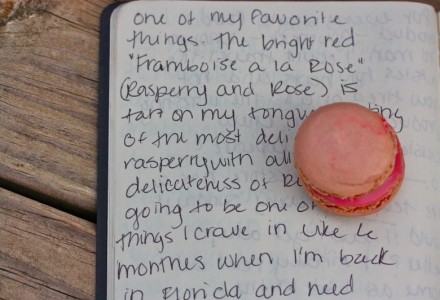 one of my favorite
things. The bright red
"Framboise a la Rose"
(Raspberry and Rose) is
tart on my
of the most
rasperry with
delicateness of
going to be one of
things I crave in like 6
monthes when I'm back
in Florida and need